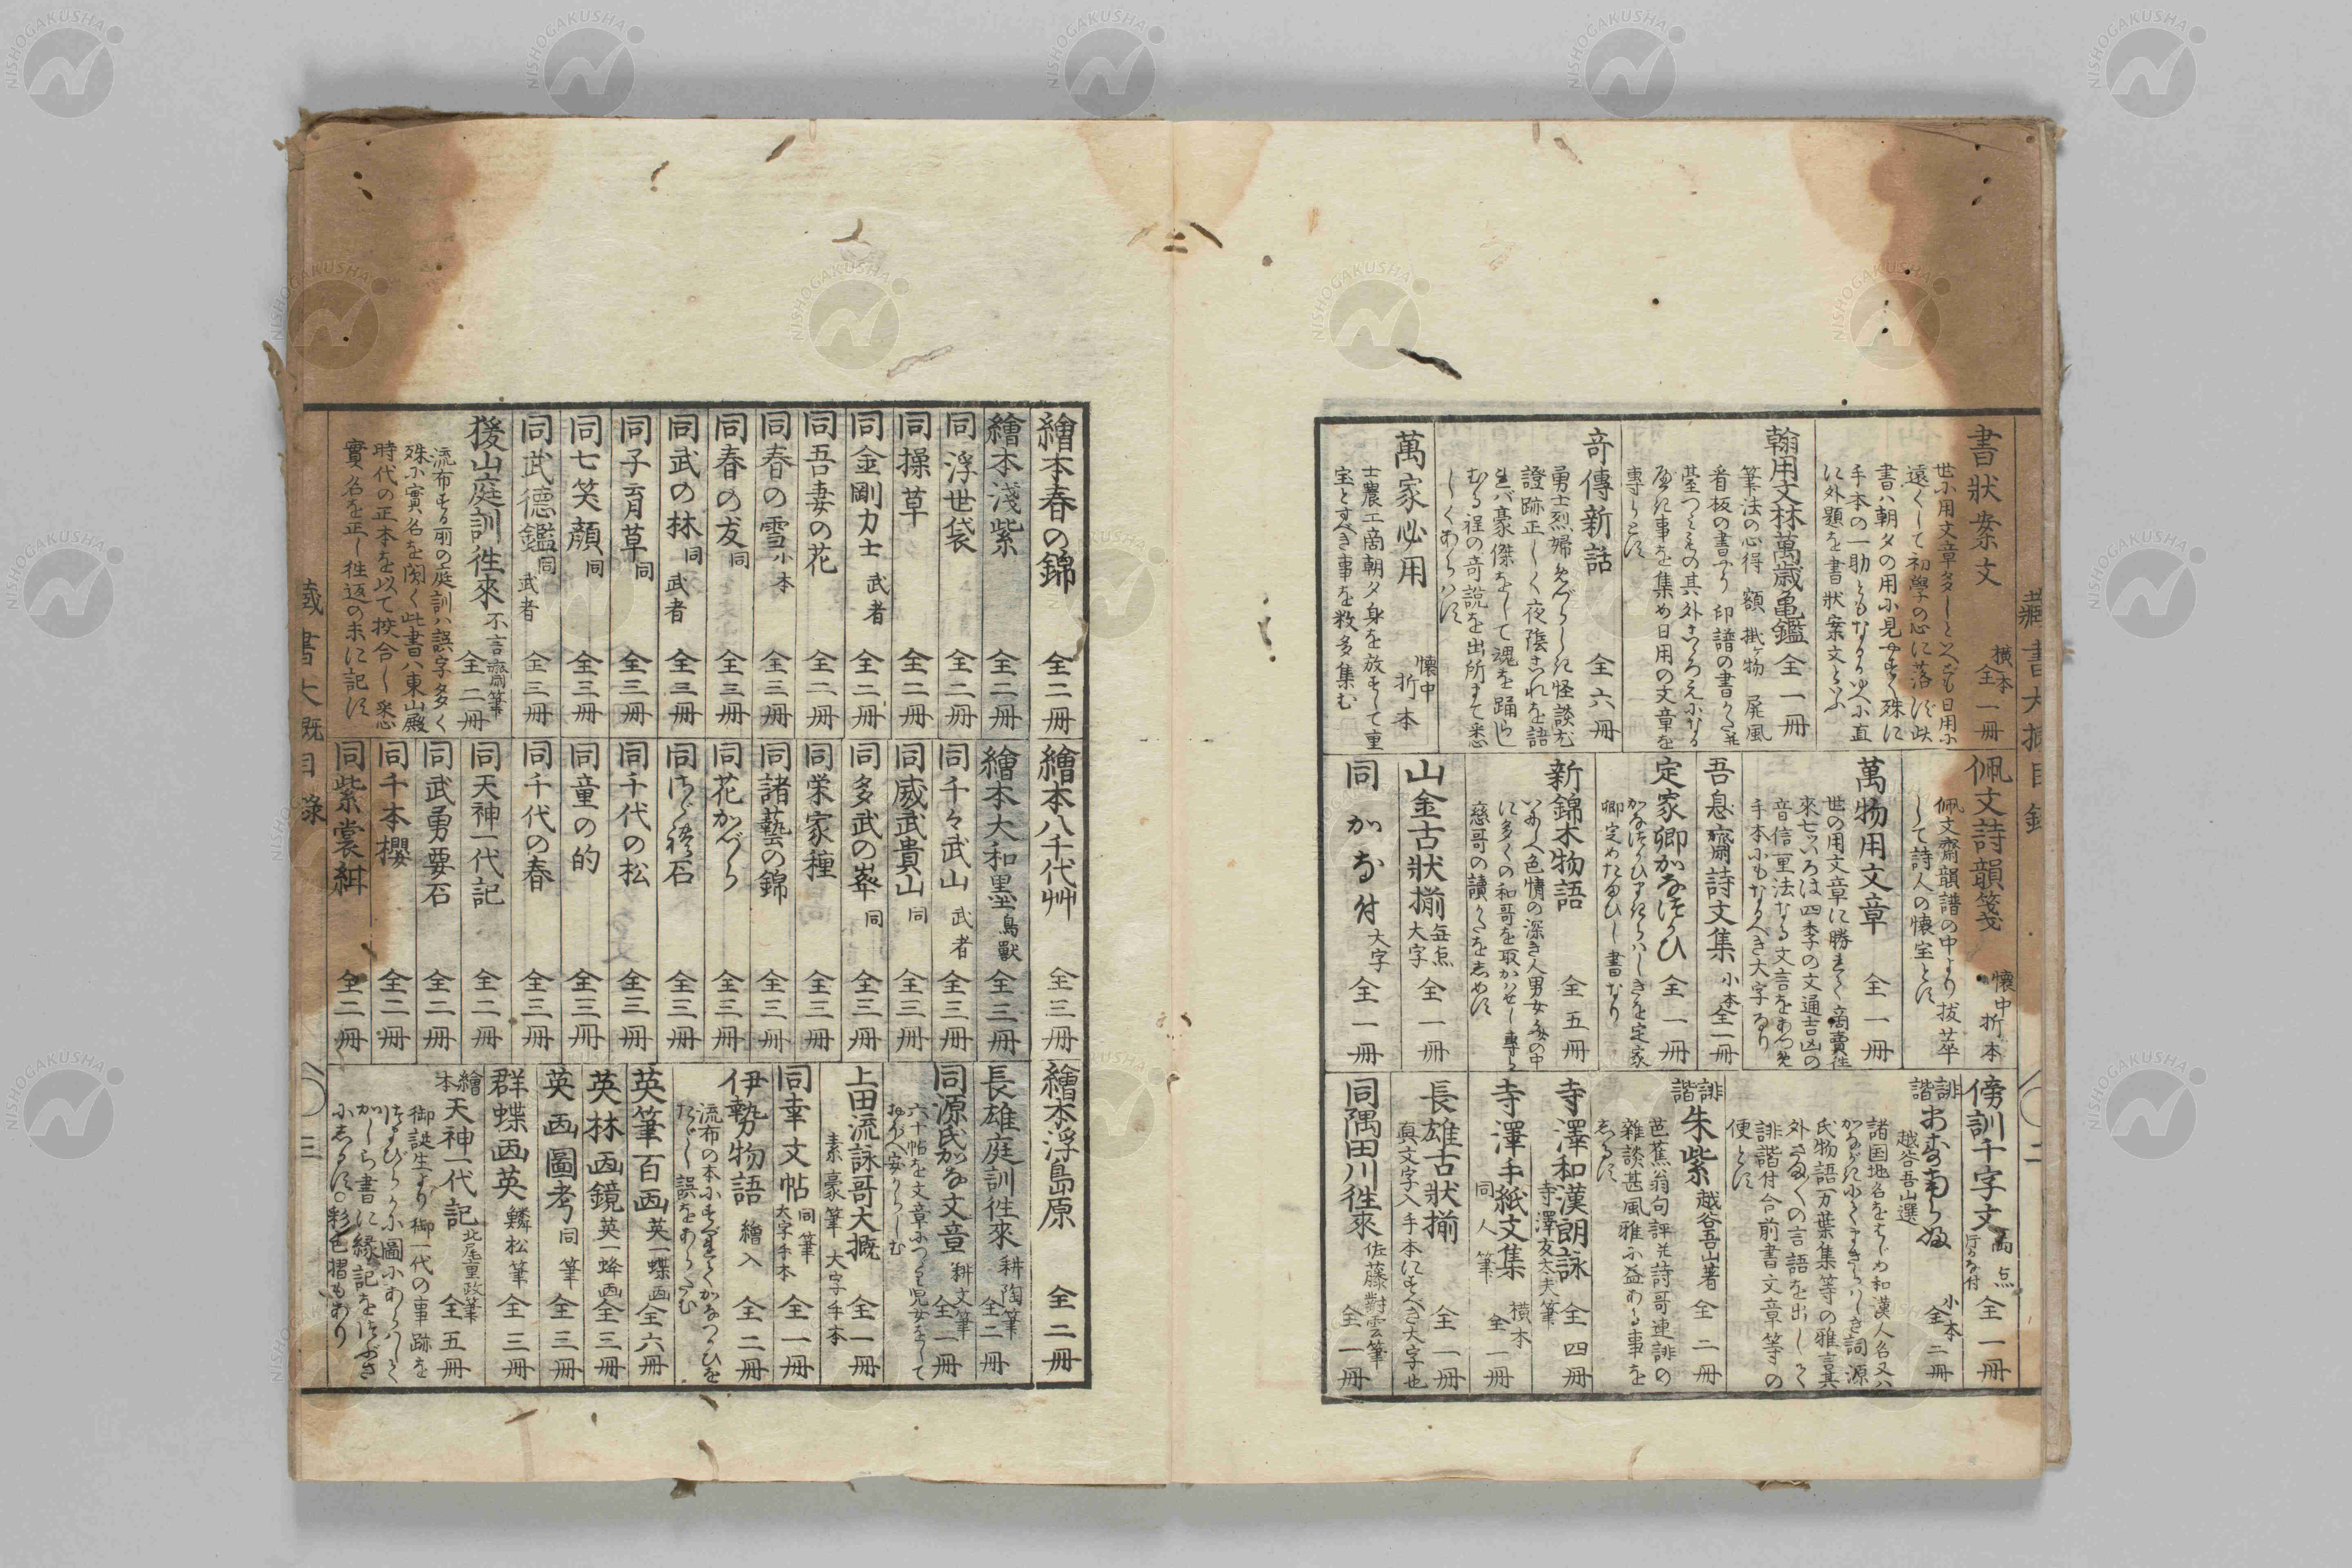 書状案文 横本 全一冊
世に用文章多しといへども日用に
遠くして初學の心に落
書ハ朝夕の用に見やすく殊に
手本の一助ともなるゆへに直
に外題を書状案文といふ
翰用文林萬歳亀鑑 全一冊
筆法の心得 額 掛ヶ物 屍風
看板の書やう 印譜の書かた并
事を集め日用の文章を
専らとす
奇傳新話 全六冊
勇士烈婦めづらしき怪談尤
證跡正しく夜陰これを語
れバ豪傑をして魂を踊らし
むる程の奇説を出所まて悉
しくあらハす
萬家必用 懐中 折本
士農工商朝夕身を放ずして重
宝とすべき事を数多集む
佩文詩韻箋 懐中 折本
佩文齋韻譜の中より拔萃
して詩人の懐宝とす
萬物用文章 全一冊
世の用文章に勝れて商賣往
來七いろは四季の文通吉凶の
音信一里法なる文言をあつめ
手本にもなるべき大字なり
吾息齋詩文集 小本 全一冊
定家卿かなづかひ 全一冊
卿定めたまひし書なり
新錦木物語 全五冊
いにしへ色情の深き人男女の中
に多くの和哥を取かハせし専ら
慈哥の讀かたをしめす
山金古狀揃 無点 大字 全一冊
同 かな付 大字 全一冊
傍訓千字文 両点 全一冊
誹諧 あふむらめ 小本 全二冊
越谷吾山選
諸国地名をはじめ和漢人名又ハ
かなづかひまぎらハしき詞源
氏物語万葉集等の雅言其
外さまの言語を出して
誹諧付合前書文章等の
便とす
誹諧 朱紫 越谷吾山著 全二冊
芭蕉翁句評并詩哥連誹の
雑談甚風雅に益ある事を
しるす
寺澤和漢朗詠 寺澤友太夫筆 全四冊
寺澤手紙文集 同人筆 横本 全一冊
長雄古狀揃 全一冊
真文字入手本にすべき大字也
同隅田川徃來 佐藤對雲筆 全一冊
繪本春の錦 全二冊
繪本淺紫 全二冊
同浮世袋 全二冊
同操草 全二冊
同金剛力士 武者 全二冊
同吾妻の花 全二冊
同春の雪 小本 全三冊
同春の友 同 全三冊
同武の林 同 武者 全三冊
同子育草 同 全三冊
同七笑顔 同 全三冊
同武德鑑 同 武者 全三冊
後山庭訓徃來 不言齋筆 全二冊
流布する所の庭訓ハ誤字多く
殊に實名を闕く此書ハ東山殿
時代の正本を以て挍合し悉
實名を正し徃返の末に記す
繪本八千代艸 全三冊
繪本大和墨 鳥獸 全三冊
同千々武山 武者 全三冊
同威武貴山 同 全三冊
同多武の峯 同 全三冊
同栄家種 全三冊
同諸藝の錦 全三冊
同花かづら 全三冊
同さゞれ石 全三冊
同千代の松 全三冊
同童の的 全三冊
同千代の春 全三冊
同天神一代記 全二冊
同武勇要石 全二冊
同千本櫻 全二冊
同紫裳紲 全二冊
繪本浮島原 全二冊
長雄庭訓徃來 耕陶筆 全二冊
同源氏かな文章 耕文筆 全一冊
六十帖を文章につくり児女をして
上田流詠哥大概 素豪筆 大字手本 全一冊
同幸文帖 同筆 大字手本 全一冊
伊勢物語 繪入 全二冊
流布の本にすぐれてかなづかひを
たゞし誤をあらたむ
英筆百画 英一蝶画 全六冊
英林画鏡 英一蜂画 全三冊
英画圖考 同筆 全三冊
群蝶画英 鱗松筆 全三冊
繪本 天神一代記 北尾重政筆 全五冊
御誕生より御一代の事跡を
つまびらかに圖にあらハして
かしら書に縁記をつぶさ
にしるす○彩色摺もあり
藏書大概目録
三